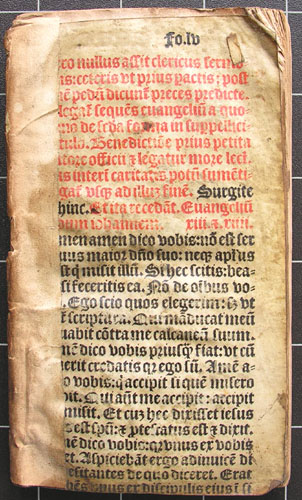 Fo.lv
co nullus assit clericus sermo
is: ceteris vt prius pactis: post
nē pedū dicunt preces predicte.
legat sequēs euangeliū a quo
no de scda forma in suppellici
tulo. Benedictiōe prius petita
atore officii & legatur more lect.
is inter caritatis potū sumenti
gat vsq; ad illū finē. Surgite
hinc. Et ita recedāt. Euangeliū
dum iohannem. xiii. & xiiii.
men amen dico vobis: nō est ser
uus maior dño suo: neq; aplus
st q misit illū. Si hec scitis: bea
si feceritis ea. Nō de oībus vo
. Ego scio quos elegerim: s; vt
t scriptura. Qui māducat meū
uabit cōtra me calcaneū suum.
nō dico vobis priusq̄ fiat: vt cū
erit credatis qr ego sū. Amē a
o vobis: q̄ accipit si quē misero
pit. Qui aūt me accipit: accipit
misit. Et cuz hec dixisset iesus
est spū: & ptestatus est & dixit.
nē dico vobis: qr vnus ex vobis
et. Aspiciebāt ergo adinuicē di
sitantes de quo diceret. Erat
nus ex discipulis eius i si